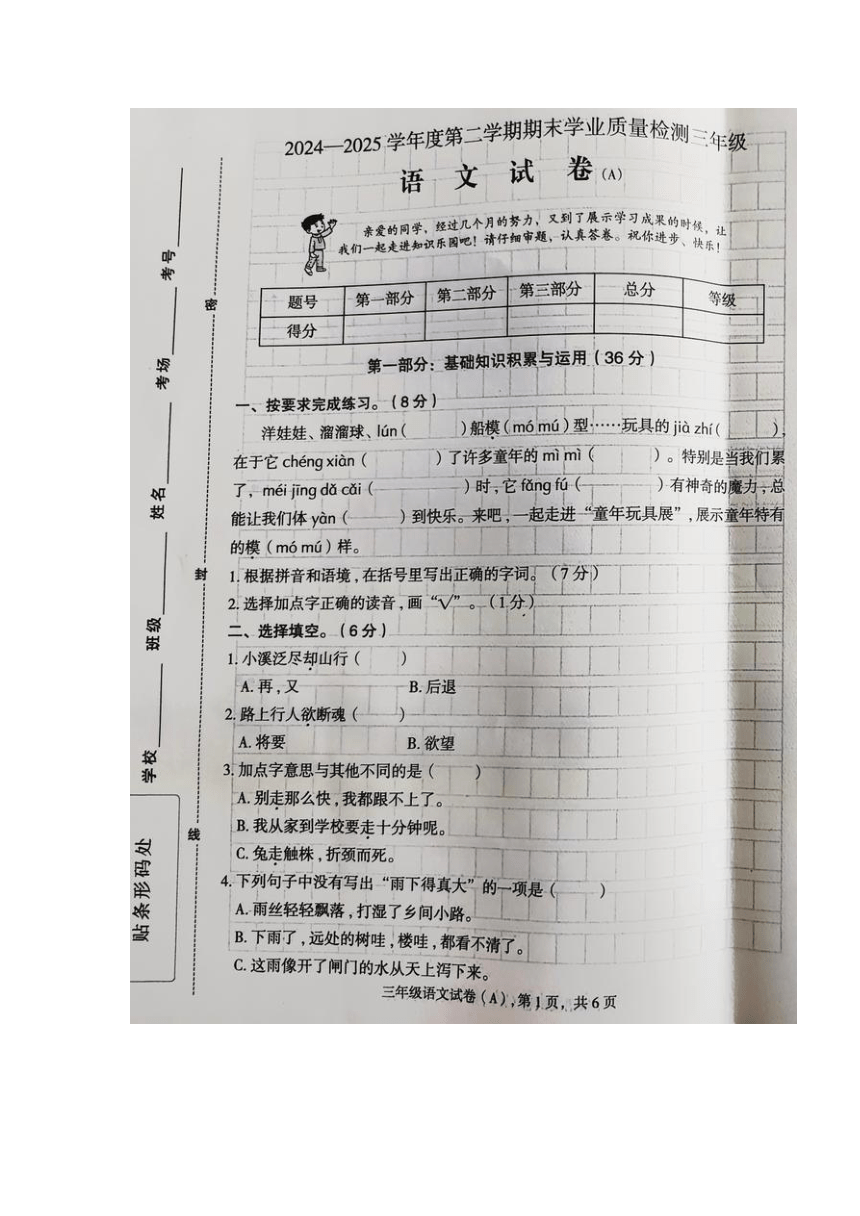 2024—2025学年度第二学期期末学业质量检测三年级
语 文 试 卷(A)
亲爱的同学,经过几个月的努力,又到了展示学习成果的时候,让
我们一起走进知识乐园吧!请仔细审题,认真答卷。祝你进步、快乐!
题号 第一部分 第二部分 第三部分 总分 等级
得分
第一部分:基础知识积累与运用(36分)
一、按要求完成练习。(8分)
洋娃娃、溜溜球、lún( )船模(mó mú)型……玩具的jià zhí( ),
在于它chéng xiàn( )了许多童年的mì mì( )。特别是当我们累
了,méi jīng dǎ cǎi( )时,它fǎng fú( )有神奇的魔力,总
能让我们体yàn( )到快乐。来吧,一起走进“童年玩具展”,展示童年特有
的模(mó mú)样。
1.根据拼音和语境,在括号里写出正确的字词。(7分)
2.选择加点字正确的读音,画“√”。(1分)
二、选择填空。(6分)
1.小溪泛尽却山行( )
A.再,又 B.后退
2.路上行人欲断魂( )
A.将要 B.欲望
3.加点字意思与其他不同的是( )
A.别走那么快,我都跟不上了。
B.我从家到学校要走十分钟呢。
C.兔走触株,折颈而死。
4.下列句子中没有写出“雨下得真大”的一项是( )
A.雨丝轻轻飘落,打湿了乡间小路。
B.下雨了,远处的树哇,楼哇,都看不清了。
C.这雨像开了闸门的水从天上泻下来。
三年级语文试卷(A),第1页,共6页
学校 班级 姓名 考场 考号
贴条形码处
密
封
线